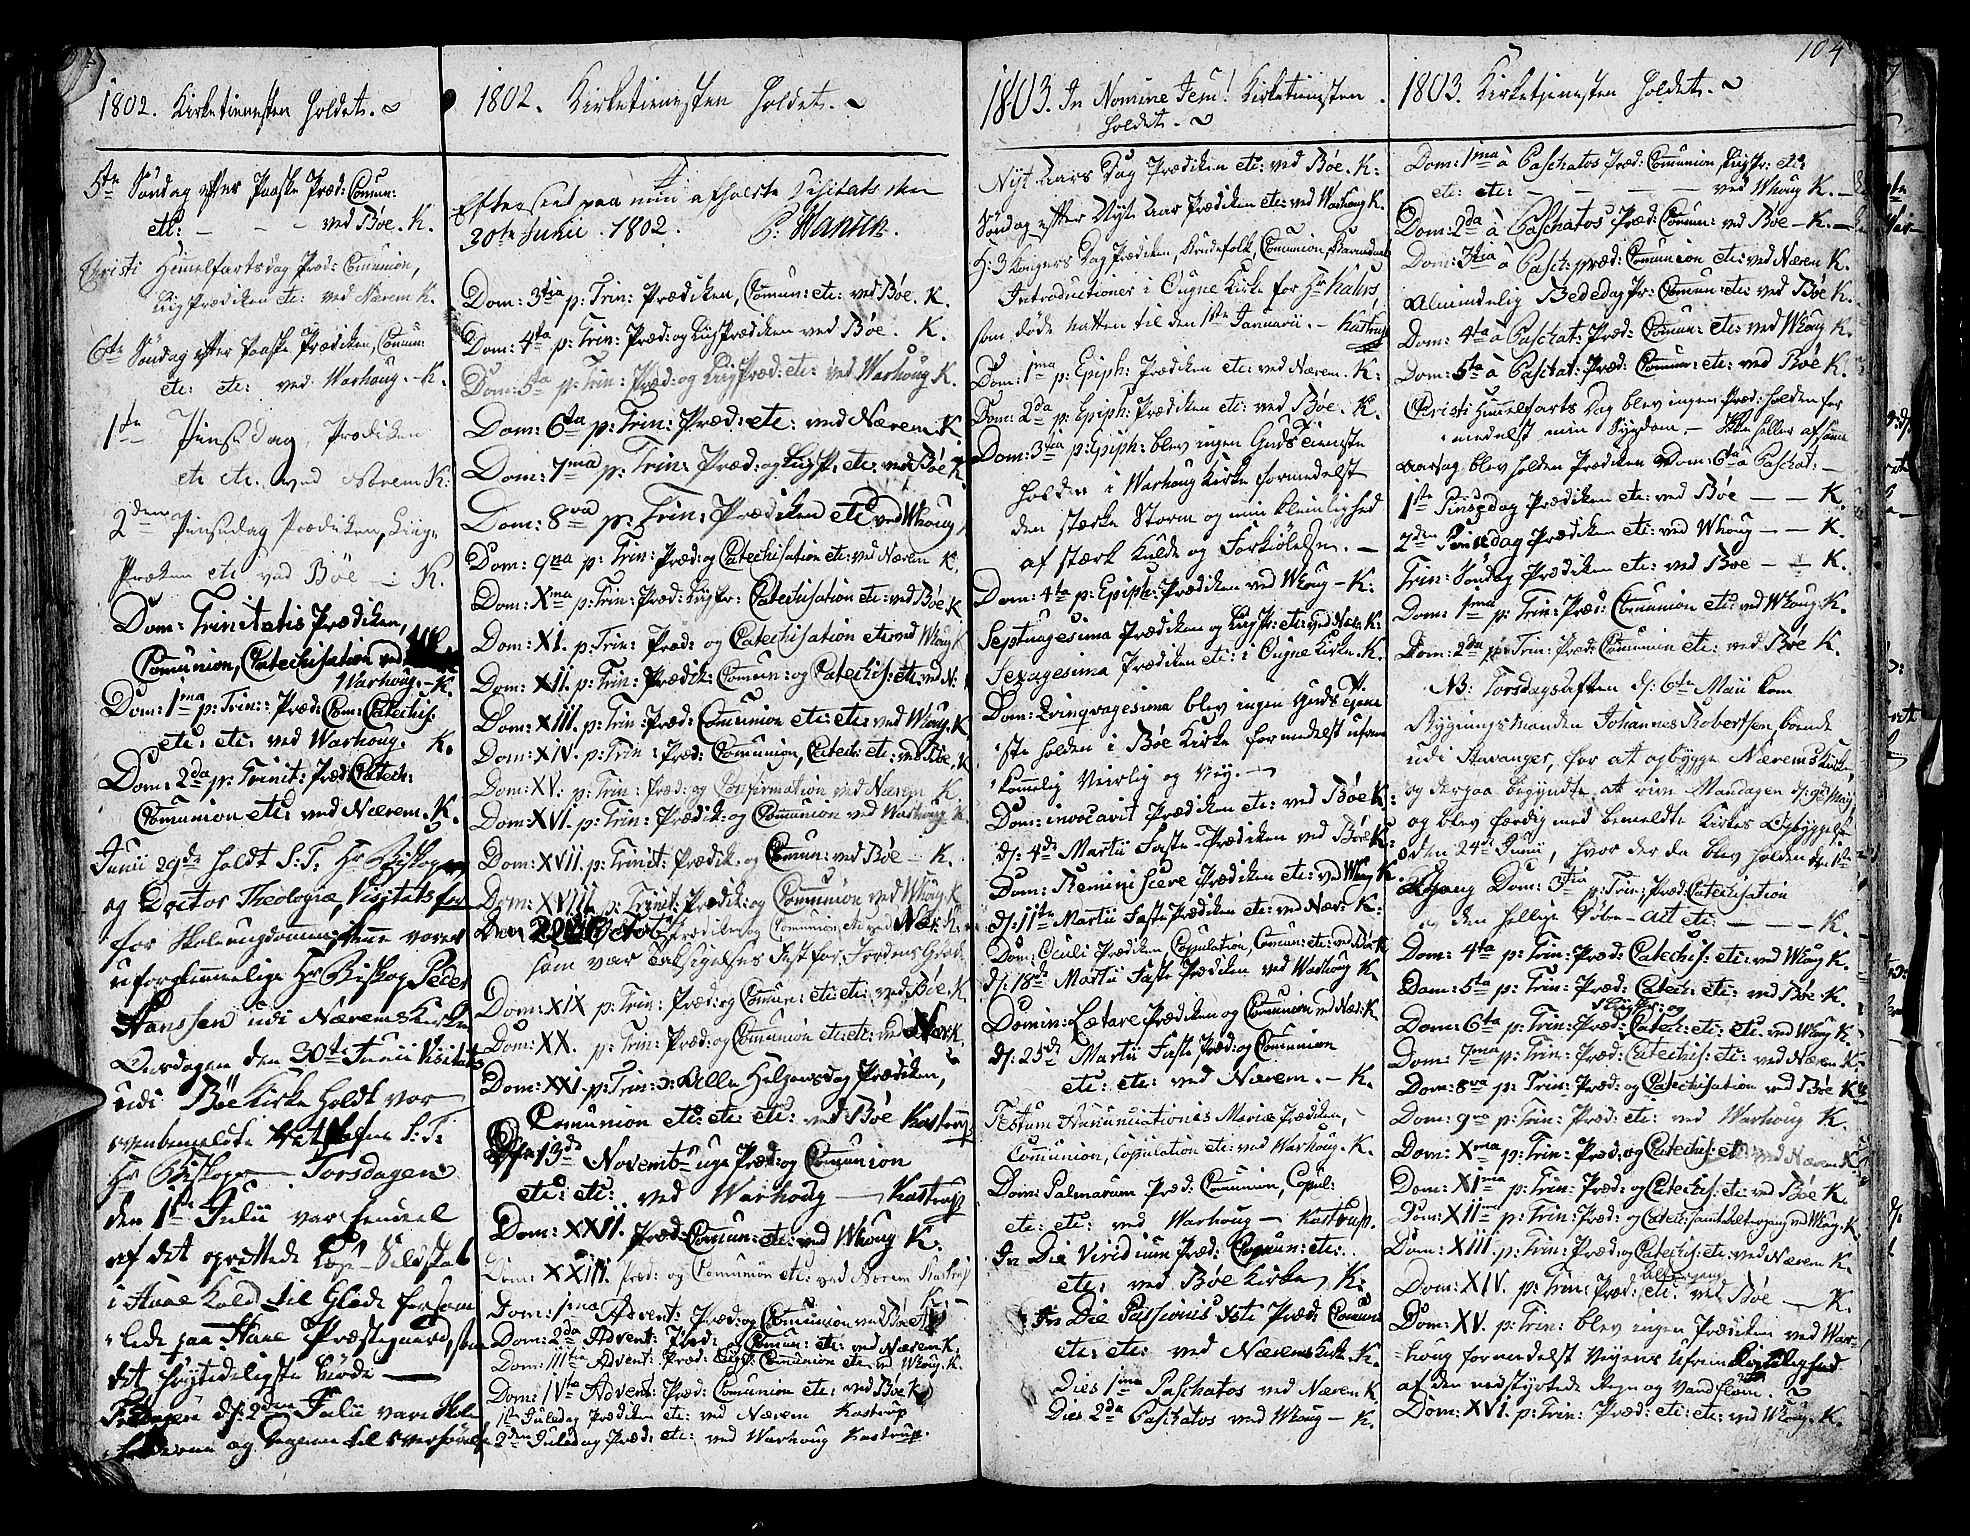 104
1802. Kirketienesten holdet.
5te Søndag efter Paaske Præd: Comun:
etc: — — — ved Bøe. K.
Christi Himelfartsdag Præd: Comunion,
Liigprædiken etc: ved Nærem K.
6te Søndag efter Paaske Prædiken, Comun:
etc: etc: ved Warhoug. K.
1ste Pinsedag, Prædiken
etc etc. ved Nærem K.
2den Pinsedag Prædiken, Liig-
Præken etc ved Bøe — K.
Dom: Trinitatis Prædiken,
Comunion, Catechisation ved
Warhoug. — K.
Dom: 1ma p: Trin: Præd: Com: Catechis:
etc: etc: ved Warhoug. K.
Dom: 2da p: Trinit: Præd: Catech:
Comunion etc: ved Nærem. K.
Junii 29de holdt S: T: Hr Biskop
og Doctor Theologiæ, Visitats
for Skoleungdommen
uforglemmelige Hr Biskop Peder
Hanssen udi Nærems Kirke
Onsdagen den 30te Junii Visitats
udi Bøe Kirke holdt vor
ovenbemeldte S: T:
Hr Biskop — Torsdagen
den 1ste Julii var
af det oprettede Læse-Selskab
i Haae Kald til Glæde forsam-
lede paa Haae Præstegaard, som
det høytideligste
dj: 2den Julii vare Skole
1802. Kirketienesten holdet.
Efterseet paa min afholdte Visitats den
30te Junii. 1802. P. Hansen.
Dom: 3tia p: Trin: Prædiken, Comun: etc: ved Bøe. K.
Dom: 4ta p: Trin: Præd: og Liigprædiken ved Bøe. K.
Dom: 5ta p: Trin: Præd: og Liigpræd: etc: ved Warhoug K.
Dom: 6ta p: Trin: Præd: etc: ved Nærem K.
Dom: 7ma p: Trin: Præd: og Liigp: etc: ved Bøe K.
Dom: 8va p: Trin: Prædiken etc ved Whoug
Dom: 9na p: Trin: Præd: og Catechisation etc: ved Nærem K.
Dom: Xma p: Trin: Præd: Liigpr: Catechisation etc: ved Bøe K
Dom: XI. p: Trin: Præd: og Catechisation etc ved Whoug K
Dom: XII. p: Trin: Prædik: Comun: og Catechis: etc: ved N:
Dom: XIII. p: Trin: Præd: Comunion etc: etc: ved Whoug. K
Dom: XIV. p: Trin: Præd: Comunion, Catech: etc: ved Bøe, K
Dom: XV. p: Trin: Præd: og Confirmation ved Nærem K.
Dom: XVI. p: Trin: Prædik: og Comunion ved Warhoug K.
Dom: XVII. p: Trinit: Prædik: og Comun: ved Bøe — K.
Dom: XVIII. p: Trinit: Prædik: og Comunion ved Whoug K
Prædiken og Comunion etc ved Nær: K.
som var Taksigelses Fest for Jordens Grøde
Dom: XIX p: Trin: Præd: og Comun: etc: etc: ved Bøe. K
Dom: XX. p: Trin: Præd: og Comunion etc: etc: ved Nær K
Dom: XXI. p: Trin: ɔ: Alle Helgensdag Prædiken,
Comunion etc: etc: etc: ved Bøe Kastrup
13de Novembr: uge Præd: og Comunion
etc: etc: ved Warhoug — Kastrup
Dom: XXII. Præd: Comun: etc: ved Whoug K.
Dom: XXIII. Præd: og Comunion etc: ved Nærem Kastrup
Dom: 1ma Advent: Præd: og Comunion ved Bøe K. —
Dom: 2da Advent: Præd: og Comun: etc: ved Nærem K.
Dom: IIItia Advent: Præd: Liigp: Comunion etc ved Whoug. K.
Dom: IVta Advent: Præd: Comunion etc: ved Bøe K
1ste Juledag Prædiken etc: ved Nærem Kastrup
2den Juledag Præd: etc: ved Warhoug Kastrup.
1803. In Nomine Jesu! Kirketienesten
holdet.
Nyt Aars Dag Prædiken etc: ved Bøe. K:
Søndag efter Nyte Aar Prædiken etc: ved Warhoug K.
H: 3 Kongers Dag Prædiken, Brudefolk, Comunion, Barnedaab
Introductioner i Ougne Kirke for Hr
som døde natten til den 1ste Januarii. — Kastrup
Dom: 1ma p: Epiph: Prædiken etc: ved Nærem. K:
Dom: 2da p: Epiph: Prædiken etc: ved Bøe. K.
Dom: 3tia p: Epiph: blev ingen Guds Tieneste
holden i Warhoug Kirke formedelst
den stærke Storm og min Kleinlighed
af stærk Kulde og Forkiølelse. —
Dom: 4ta p: Epiph: Prædiken ved Whoug — K:
Septuagesima Prædiken og Liigpr: etc: ved Nær: K:
Sexagesima Prædiken etc: i Ougne Kirke. K.
Dom: Qvinqvagesima blev ingen Guds Tiene-
ste holden i Bøe Kirke formedelst ufrem-
kommelig Veirlig og Vey. —
Dom: invocavit Prædiken etc: ved Bøe K.
dj: 4de Martii Faste-Prædiken ved Bøe K.
Dom: Reminiscere Prædiken etc: ved Whoug K.
dj: 11te Martii Faste Prædiken etc: ved Nær: K:
Dom: Oculi Prædiken, Copulation, Comun: etc: ved Bøe K
dj: 18de Martii Faste Prædiken ved Warhoug K.
Domin: Lætare Prædiken og Comunion ved Næ: K
dj: 25de Martii Faste Præd: og Comunion
etc: etc: ved Nærem. — K.
Festum Annunciationis Mariæ Prædiken,
Comunion, Copulation etc: ved Warhoug. K.
Dom: Palmarum Præd: Comunion, Copul:
etc: etc: ved Warhoug — Kastrup.
In Die Viridium Præd: Comun: etc:
etc: ved Bøe Kirke, K:
In Die Passionis Xsti Præd: Comun:
etc: etc: ved Nærems Kirke. K.
Dies 1ma Paschatos ved Nærem K
Dies 2da Paschatos ved Whoug — K.
1803. Kirketjenesten holdet.
Dom: 1ma à Paschatos Præd: Comunion, Liigpr: etc:
etc: etc: — — — — ved Whoug K. —
Dom: 2da à Paschatos Præd: Comun: ved Bøe — K. —
Dom: 3tia à Pasch: præd: Comunion etc: ved Nærem K.
Almindelig Bededag Pr: Comun: etc: ved Bøe K.
Dom: 4ta à Paschat: Præd: Comun: etc: ved Whoug K.
Dom: 5ta à Paschat: Præd: Comun: etc: ved Bøe K.
Christi Himelfarts Dag blev ingen Præd: holden for-
medelst min Sygdom. — Ikke heller af samme
Aarsag blev holden Prædiken Dom: 6ta à Paschat: —
1ste Pinsedag Prædiken etc: ved Bøe — — K.
2den Pinsedag Prædiken etc: ved Whoug — — K.
Trin: Søndag Prædiken etc: ved Bøe — — K.
Dom: 1ma p: Trin: Præd: Comunion etc: ved Whoug. K.
Dom: 2da p: Trin: Præd: Comunion etc: ved Bøe K.
NB: Torsdagaften dj: 6te Maii kom
Bygningsmanden Johannes Robertsen, boende
udi Stavanger, for at opbygge Nærems Kirke,
og derpaa begyndte at rive Mandagen dj: 9de Maij
og blev færdig med bemeldte Kirkes Opbyggelse
den 24de Junii, hvor der da blev holden den 1ste
Gang Dom: 3tia p: Trin: Præd: Catechisation
den hellige Døbe-Act etc: — — — K.
Dom: 4ta p: Trin: Præd: Catechis: etc: ved Whoug K.
Dom: 5ta p: Trin: Præd: Catech: etc: ved Bøe K.
Liigpr: og
Dom: 6ta p: Trin: Præd: Catech: etc: etc: ved Whoug K.
Dom: 7ma p: Trin: Præd: Catechis: etc: ved Nærem K.
Dom: 8va p: Trin: Præd: og Catechisation ved Bøe K.
Dom: 9na p: Trin: Præd: etc: ved Warhoug K.
Dom: Xma p: Trin: Præd: og Catechis: etc ved Nærem K
Dom: XIma p: Trin: Præd: og Catechis: etc ved Bøe K.
Dom: XIIma p: Trin: Præd: og Catechis: samt Altergang ved Whoug. K
Dom: XIII. p: Trin: Præd: og Catechis: etc: ved Nærem K.
Altergang
Dom: XIV. p: Trin: Præd: etc: ved Bøe — K.
Dom: XV. p: Trin: blev ingen Prædiken ved War-
houg formedelst Veyens Ufremkomelighed
af den nedstyrtede Regn og Vandflom.
Dom: XVI. p: Trin: Præd: etc: etc: ved Whoug. K.